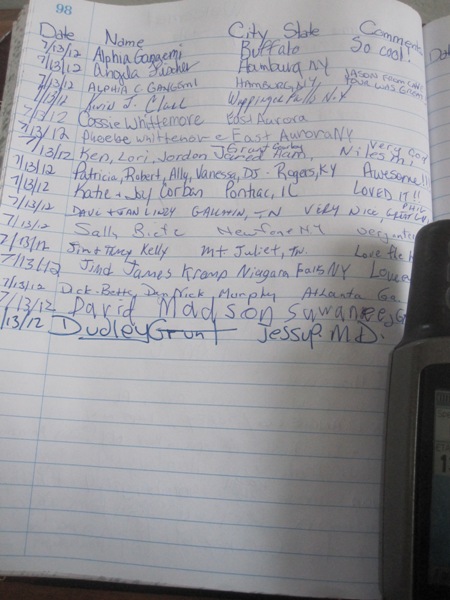 98
Date Name City State Comments
7/13/12 Alphia Gangemi Buffalo So cool!
7/13/12 Angela Hamburg NY
7/13/12 ALPHIA C GANGEMI HAMBURG, N.Y. JASON FROM CAN
7/13/12 Kevin J. N.Y. TOUR WAS
7/13/12 Cassie Whittemore East Aurora
7/13/12 Phoebe Whittemore East Aurora NY
7/13/12 Ken, Lori, Jordan Jared Ham, Niles MI Very
7/13/12 Patricia, Robert, Ally, Vanessa, DJ - Rogers, KY Awesome!!
7/13/12 Katie + Joy Corban Pontiac, IL LOVED IT!!
7/13/12 DAVE + JAN LINDY TN VERY NICE
7/13/12 Sally Newfane NY very
7/13/12 Jim + Terry Kelly Mt Juliet, TN. Love the
7/13/12 James Kromp Niagara Falls NY Love
7/13/12 Dick-Bette, Dan Nick Murphy Atlanta Ga
7/13/12 David Madson Suwanee, G
/13/12 Dudley Grunt Jessup M.D.